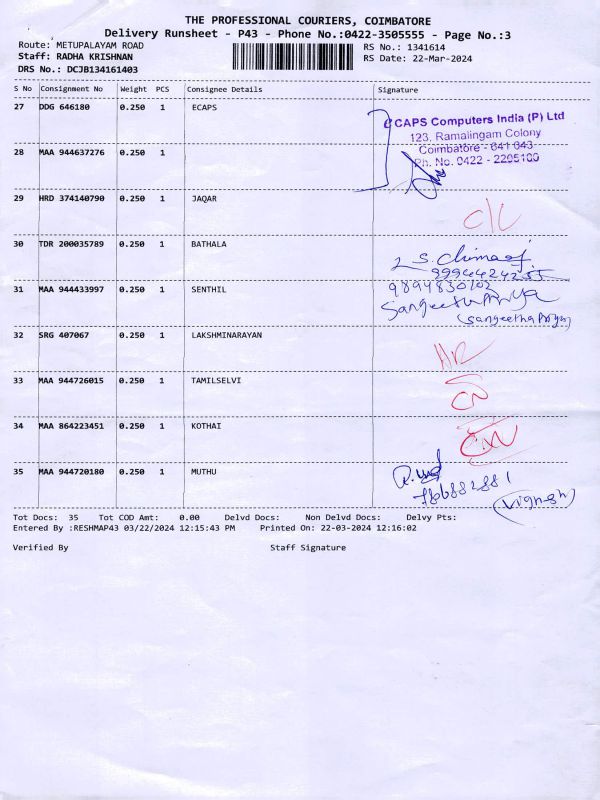 THE PROFESSIONAL COURIERS, COIMBATORE
Delivery Runsheet - P43 - Phone No.:0422-3505555 - Page No.:3
Route: METUPALAYAM ROAD RS No.: 1341614
Staff: RADHA KRISHNAN RS Date: 22-Mar-2024
DRS No.: DCJB134161403
S No Consignment No Weight PCS Consignee Details Signature
27 DDG 646180 0.250 1 ECAPS
CAPS Computers India (P) Ltd
123, Ramalingam Colony
Coimbatore - 641 043
Ph. No. 0422 - 2205100
28 MAA 944637276 0.250 1
29 HRD 374140790 0.250 1 JAQAR
30 TDR 200035789 0.250 1 BATHALA
31 MAA 944433997 0.250 1 SENTHIL
9894830102
Sangeetha Priya
(Sangeetha Priya)
32 SRG 407067 0.250 1 LAKSHMINARAYAN
33 MAA 944726015 0.250 1 TAMILSELVI
34 MAA 864223451 0.250 1 KOTHAI
35 MAA 944720180 0.250 1 MUTHU
(Vignesh)
Tot Docs: 35 Tot COD Amt: 0.00 Delvd Docs: Non Delvd Docs: Delvy Pts:
Entered By :RESHMAP43 03/22/2024 12:15:43 PM Printed On: 22-03-2024 12:16:02
Verified By Staff Signature